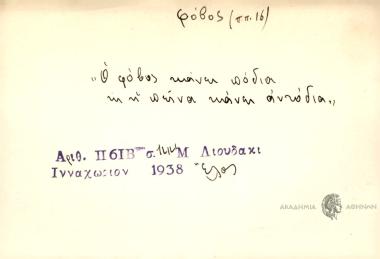 φόβος (ππ.16)
„Ὁ φόβος κάνει πόδια
κι ἡ πεῖνα κάνει ἀντόδια„
Αριθ. Π61Β σ. Μ Λιουδακι
Ινναχωριον 1938 Ἔλος
ΑΚΑΔΗΜΙΑ ΑΘΗΝΩΝ